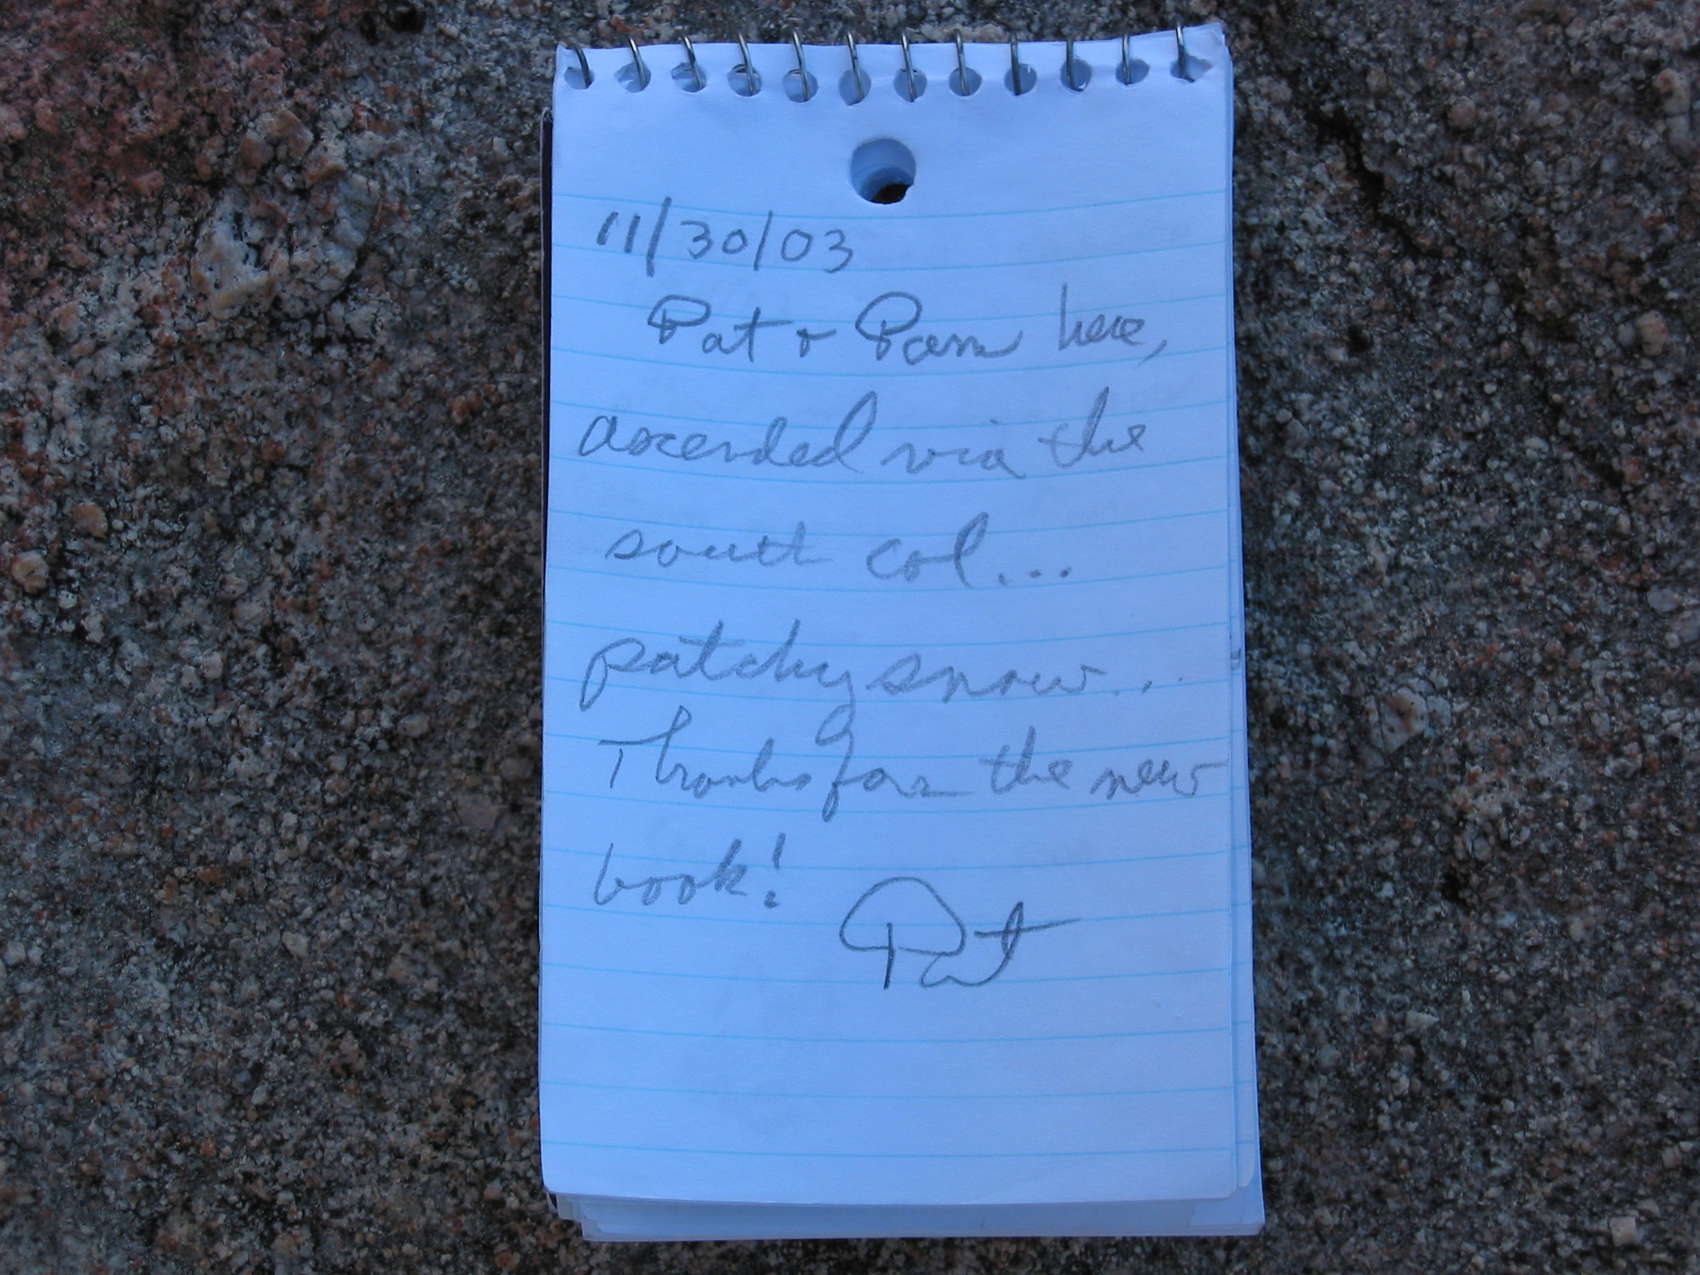 11/30/03
Pat + Pam here,
ascended via the
south col...
patchy snow...
Thanks for the new
book!
Pat